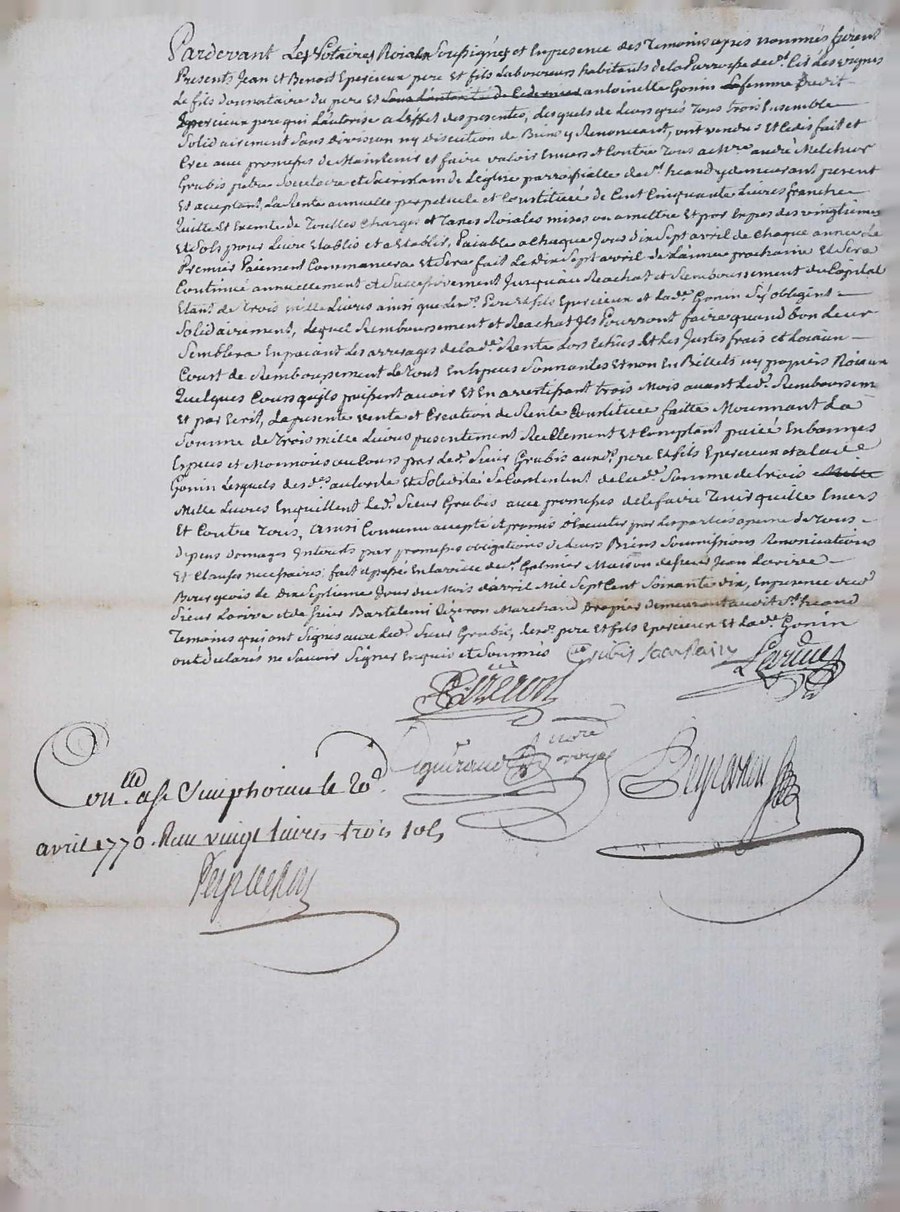 Pardevant Les Notaires Roiaux Soussignés et En presence des Temoins apres nommés furent
Presents Jean et Benoist Epercieux pere et fils Laboureurs habitants de la Parroisse de st. Cir Les vignes
Le fils donnataire du pere et antoinette Gonin sa femme Ledit
Epercieux pere qui L'autorise a L'effet des presentes, desquels de Leurs grés Tous trois Ensemble
Solidairement Sans Division ny Discution de Biens y Renonceant, ont vendus Et Cedés fait et
Créé aux promesses de Maintenir et faire valoir Envers et Contre Tous a Mre. andré Melchior
Grubis pretre Societaire et Sacristain de L'eglise parroissialle de st. heand y demeurant present
Et acceptant, La Rente annuelle perpetuelle et Constituée de Cent Cinquante Livres franche
Quitte Et Exempte de Touttes Charges et Taxes Roiales mises ou a mettre Et par Expres des vingtiemes
Et Sols pour Livre Etablis et a Etablir, Paiable a Chaque Jour dix Sept avril de Chaque année Le
Premier Paiement Commancera Et Sera fait Le dix Sept avril de L'année prochaine Et Sera
Continué annuellement et Successivement Jusqu'au Reachat et Remboursement du Capital
Etant de Trois mille Livres ainsi que desd. Pere et fils Epercieux et Lade. Gonin S'y obligent
Solidairement, Lequel Remboursement et Reachat Ils Pourront faire quand bon Leur
Semblera En paiant Les arrerages de lade. Rente Lors Echus Et Les Justes frais et Loiaux
Cout de Remboursement Le Tout En Especes Sonnantes Et non En Billets ny papiers Roiaux
Quelques Cours qu'ils puissent avoir et En avertissant trois Mois avant Led. Remboursem
Et par Ecrit, La presente vente et Creation de Rente Constituée faitte Moiennant La
Somme de Trois mille Livres presentement Reellement Et Comptant paiée En bonnes
Especes et Monnoies au Cours par Led. Sieur Grubis auxd. pere Et fils Epercieux et a lade.
Gonin Lesquels desd. autorité et Solidité Se Contentent de lade. Somme de trois
Mille Livres En quittent Led. Sieur Grubis aux promesses de le faire Tenir quitte Envers
Et Contre Tous, ainsi Convenu accepté et promis d'Executer par Les parties a peine de Tous
depens domages Interets par promesses obligations de Leurs Biens Soumissions Renonciations
Et Clauses necessaires. fait et passé En la ville de st. Galmier Maison de Sieur Jean
Bourgeois Le Dix Septieme Jour du Mois d'avril Mil Sept Cent Soixante dix, En presence dud.
Sieur et de Sieur Bartelemi Ezeron Marchand Drapier demeurant audit st. heand
Temoins qui ont Signés avec Led. Sieur Grubis, desd. pere Et fils Epercieux Et Lade. Gonin
ont declarés ne Savoir Signer Enquis et Sommés
Grubis Sacristain
Ezeron
Peyrachon
Conllé. a st Simphorien le 20e.
avril 1770. Reçu vingt livres trois sols
Peyrachon